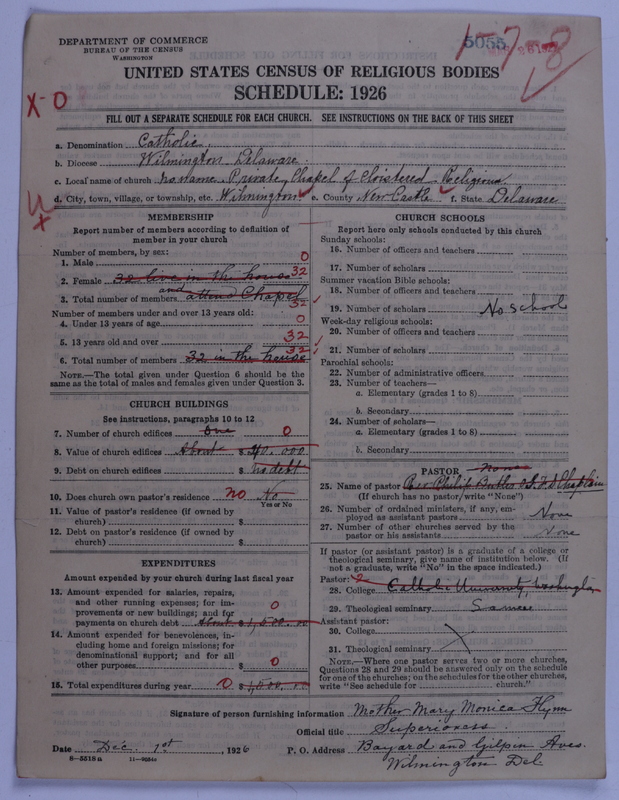 DEPARTMENT OF COMMERCE
BUREAU OF THE CENSUS
WASHINGTON
5055
1-7-8
UNITED STATES CENSUS OF RELIGIOUS BODIES
SCHEDULE: 1926
X-0
FILL OUT A SEPARATE SCHEDULE FOR EACH CHURCH. SEE INSTRUCTIONS ON THE BACK OF THIS SHEET
a. Denomination Catholic
b. Diocese Wilmington Delaware
c. Local name of church no name Private Chapel of Cloistered Religious
d. City, town, village, or township, etc. Wilmington e. County New Castle f. State Delaware
MEMBERSHIP
Report number of members according to definition of
member in your church
Number of members, by sex:
1. Male 0
2. Female 32 live in the house 32
3. Total number of members and attend Chapel 32
Number of members under and over 13 years old:
4. Under 13 years of age 0
5. 13 years old and over 32
6. Total number of members 32 in the house 32
NOTE.—The total given under Question 6 should be
the same as the total of males and females given under Question 3.
CHURCH BUILDINGS
See instructions, paragraphs 10 to 12
7. Number of church edifices One 0
8. Value of church edifices About $ 40.000
9. Debt on church edifices $ no debt
10. Does church own pastor's residence no No
Yes or No
11. Value of pastor's residence (if owned by
church) $
12. Debt on pastor's residence (if owned by
church) $
EXPENDITURES
Amount expended by your church during last fiscal year
13. Amount expended for salaries, repairs,
and other running expenses; for im-
provements or new buildings; and for
payments on church debt About $ 1,000.00 0
14. Amount expended for benevolences, in-
cluding home and foreign missions; for
denominational support; and for all
other purposes $ 0
15. Total expenditures during year 0 $ 1,000.00
CHURCH SCHOOLS
Report here only schools conducted by this church
Sunday schools:
16. Number of officers and teachers
17. Number of scholars
Summer vacation Bible schools:
18. Number of officers and teachers
19. Number of scholars No School
Week-day religious schools:
20. Number of officers and teachers
21. Number of scholars
Parochial schools:
22. Number of administrative officers
23. Number of teachers—
a. Elementary (grades 1 to 8)
b. Secondary
24. Number of scholars—
a. Elementary (grades 1 to 8)
b. Secondary
PASTOR None
25. Name of pastor Rev Philip Butler Chaplain
(If church has no pastor, write "None")
26. Number of ordained ministers, if any, em-
ployed as assistant pastors None
27. Number of other churches served by the
pastor or his assistants None
If pastor (or assistant pastor) is a graduate of a college or
theological seminary, give name of institution below. (If
not a graduate, write "No" in the space indicated.)
Pastor:
28. College Catholic University, Washington
29. Theological seminary Same
Assistant pastor:
30. College
31. Theological seminary
NOTE.—Where one pastor serves two or more churches,
Questions 28 and 29 should be answered only on the schedule
for one of the churches; on the schedules for the other churches,
write "See schedule for church."
Signature of person furnishing information Mother Mary Monica Flynn
Official title Superioress
Date Dec. 1st, 1926 P. O. Address Bayard and Gilpin Aves.
8—5518a 11—9234s Wilmington Del.